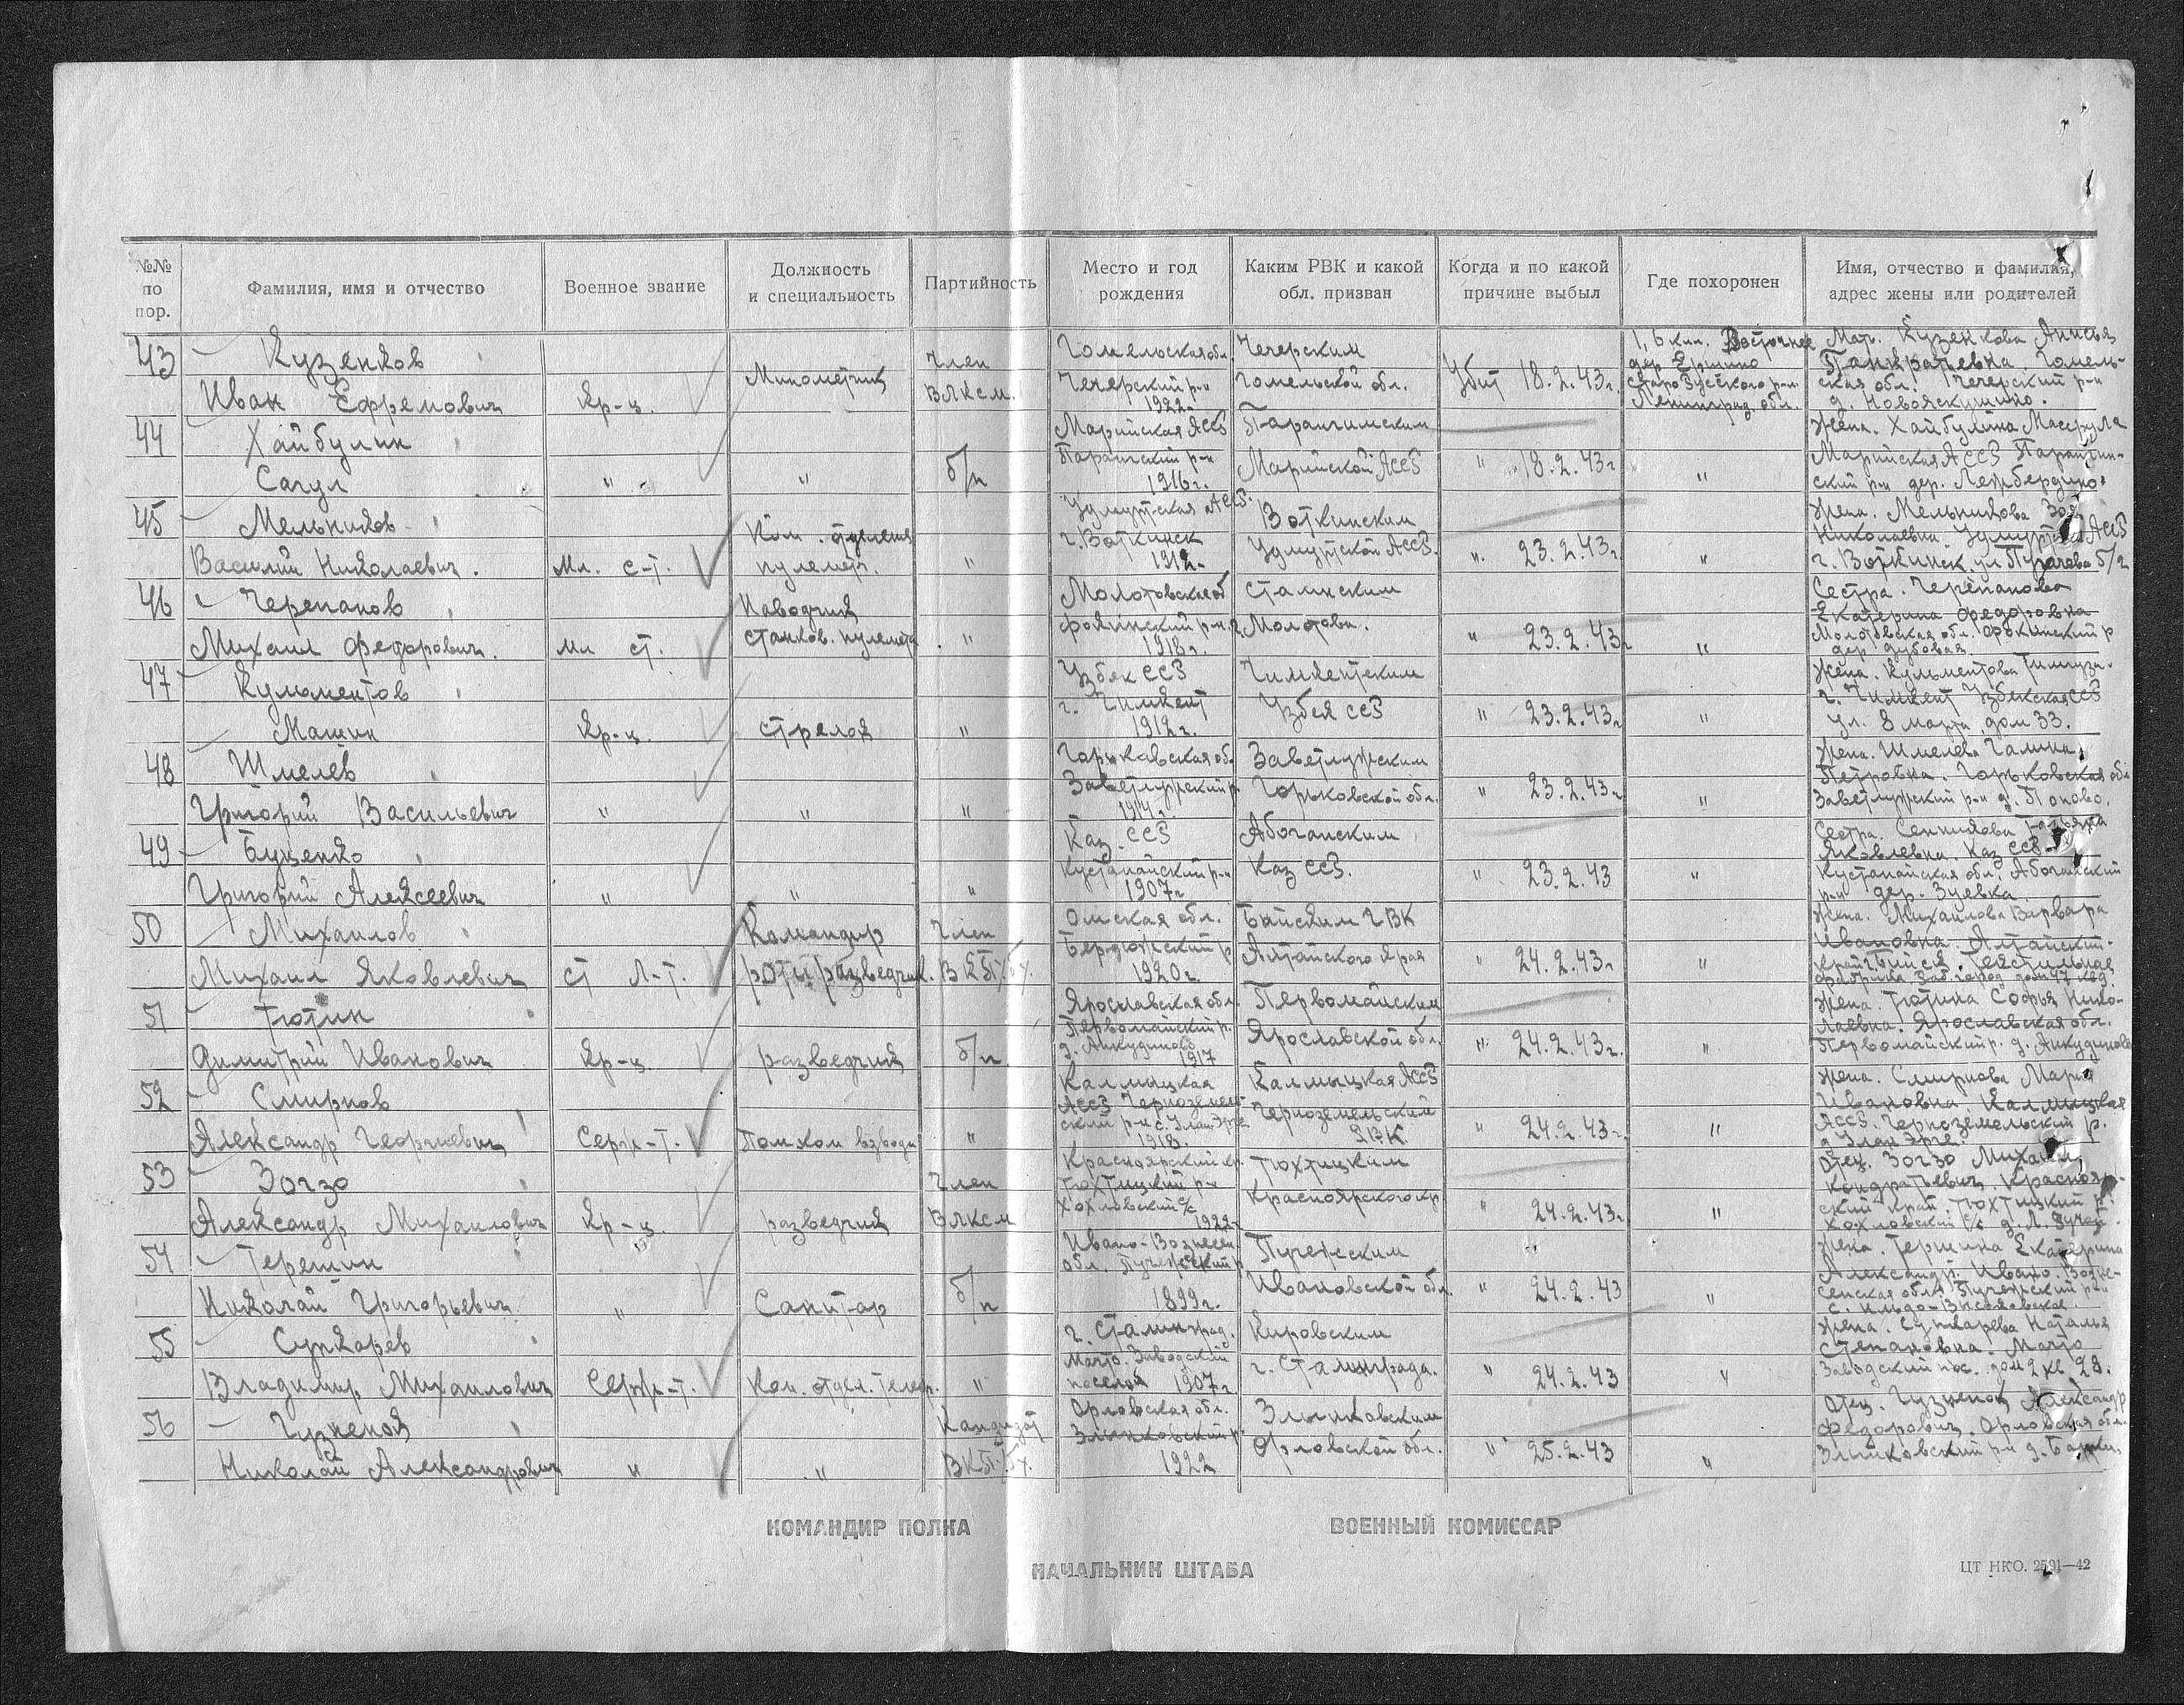 №№ по пор.
Фамилия, имя и отчество
Военное звание
Должность и специальность
Партийность
Место и год рождения
Каким РВК и какой обл. призван
Когда и по какой причине выбыл
Где похоронен
Имя, отчество и фамилия, адрес жены или родителей
43
Кузенков
Иван Ефремович
Кр-ц.
Минометчик
Член
ВЛКСМ.
Гомельская обл.
Чечерский р-н
1922г.
Чечерским
Гомельской обл.
Убит 18.2.43г.
1,6 км. Восточнее
дер. Ершино
Старо Русского р-н.
Ленинград. обл.
Мать. Кузенкова Анисья
Панкратьевна. Гомель-
ская обл. Чечерский р-н
д.
44
Хайбулин
Сагул
" -
"
б/п
Марийская АССР
Параньгский р-н
1916г.
Марийской АССР
" 18.2.43г
"
Жена. Хайбулина
Марийская АССР
ский р-н дер.
45
Мельников
Василий Николаевич.
Мл. с-т.
Ком. отделения
пулемет.
"
Удмуртская АССР.
г. Воткинск
1912г.
Воткинским
Удмуртской АССР.
". 23.2.43г.
"
Жена. Мельникова Зоя
Николаевна. АССР
г. Воткинск. ул
46
Черепанов
Михаил Федорович.
мл ст.
Наводчик
станков. пулемета
"
Молотовская об
Фокинский р-н.
1918г.
Сталинским
г. Молотова.
" 23.2.43г
"
Сестра. Черепанова
Екатерина Федоровна
Молотовская обл. Фокинский р
дер. Дубовая
47
Кульментов
Машин
Кр-ц.
стрелок
"
Узбек ССР
г. Чимкент
1912г.
Чимкентским
Узбек ССР
" 23.2.43г
"
Жена. Кульментова
г. Чимкент Узбекская ССР
ул. 8 марта дом 33.
48
Шмелев
Григорий Васильевич
"
"
"
Горьковская об.
Заветлужский р.
Заветлужским
Горьковской обл.
" 23.2.43г
"
Жена. Шмелева Галина
Петровна. Горьковская обл
Заветлужский р-н д. Попово.
49
Буценко
Григорий Алексеевич
"
"
"
Каз. ССР
Кустанайский р-н
1907г
Каз ССР.
" 23.2.43
"
Сестра. Сенникова Татьяна
Яковлевна. Каз ССР
Кустанайская обл.
р-н дер. Зуевка
50
Михаилов
Михаил Яковлевич
ст Л-т.
Командир
роты разведчик.
Член
ВКП/б/.
Омская обл.
Бердюжский р
1920г.
Бийским ГВК
Алтайского края
" 24.2.43г
"
Жена. Михаилова Варвара
Ивановна. Алтайский
край Бийск. Текстильная
фабрика.
51
Тютин
Димитрий Иванович
Кр-ц.
разведчик
б/п.
Ярославская обл.
Первомайский р.
д. Анкудиново
1917
Первомайским
Ярославской обл.
" 24.2.43г.
"
Жена. Тютина Софья Нико-
лаевна. Ярославская обл.
Первомайский р. д. Анкудиново
52
Смирнов
Александр Георгиевич
Серж-т.
Помком взвода
"
Калмыцкая
АССР Черноземель-
ский р-н с. Улан Эрге
1918г.
Калмыцкая АССР
Черноземельским
РВК.
" 24.2.43г.
"
Жена. Смирнова Мария
Ивановна. Калмыцкая
АССР. Черноземельский р.
д. Улан Эрге.
53
Зогзо
Александр Михаилович
Кр-ц.
разведчик
Член
ВЛКСМ
Красноярский кр.
Тюхтицкий р-н
Хохловский с/с
1922г
Тюхтицким
Красноярского кр
" 24.2.43г
"
Отец. Зогзо Михаил
Кондратьевич. Краснояр-
ский край. Тюхтицкий р-
Хохловский с/с
54
Терешин
Николай Григорьевич.
"
Санитар
б/п
Ивано-Вознесен.
обл. Пучежский р
1899г.
Пучежским
Ивановской обл.
" 24.2.43
"
Жена. Екатерина
Александр. Ивано. Возне-
сенская обл. Пучежский р-н
55
Сункарев
Владимир Михаилович
Серж-т.
Ком. отдел. телеф.
"
г. Сталинград.
поселок 1907г.
Кировским
г. Сталинграда.
" 24.2.43
"
Жена. Наталья
Степановна.
Заводский пос. дом 2 кв 28.
56
Гузненок
Николай Александрович
"
"
Кандидат
ВКП/б/.
Орловская обл.
Злынковский р.
1922
Злынковским
Орловской обл.
" 25.2.43
"
Отец. Гузненок Александр
Федорович. Орловская обл.
Злынковский р-н д.
КОМАНДИР ПОЛКА
ВОЕННЫЙ КОМИССАР
НАЧАЛЬНИК ШТАБА
ЦТ НКО. 2591—42